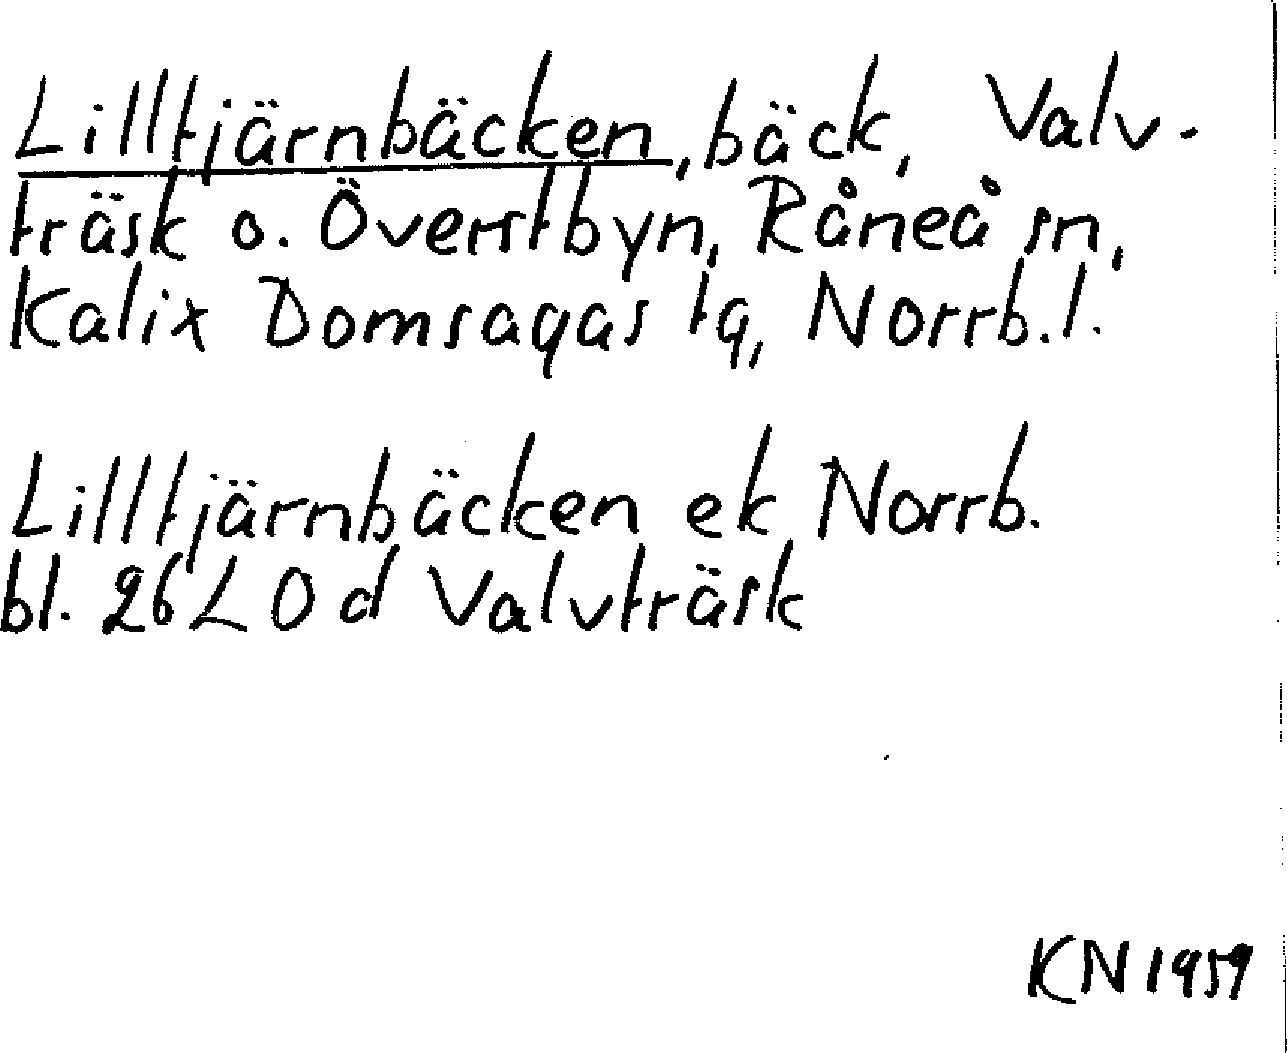 Lilltjärnbäcken, bäck, Valv-
träsk o. Överstbyn, Råneå sn,
Kalix Domsagas tg, Norrb.l.
Lilltjärnbäcken ek Norrb.
bl. 26 L 0 d Valvträsk
KN 1959